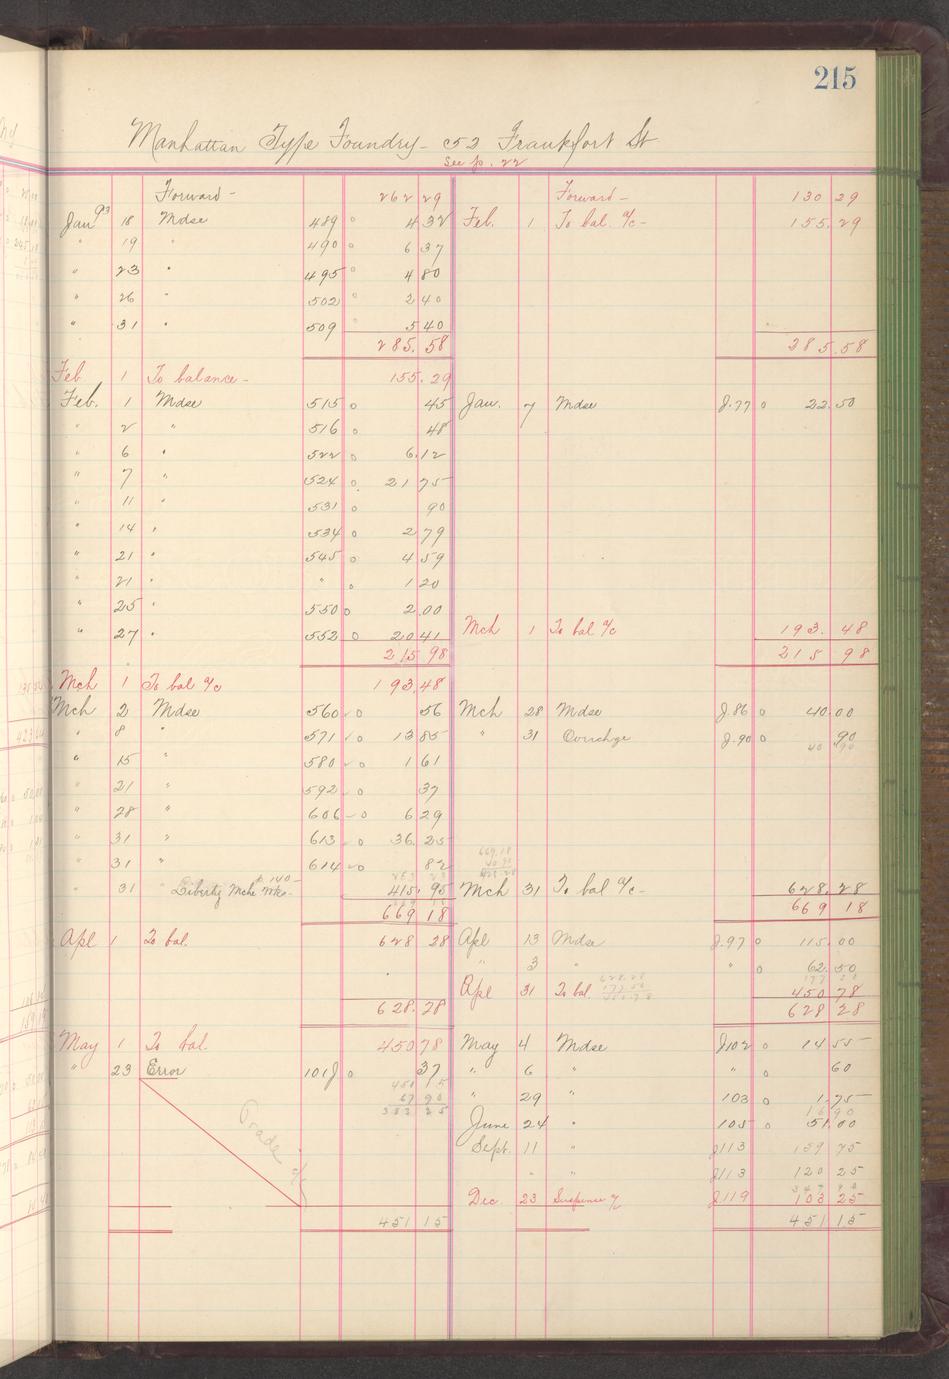 215
Manhattan Type Foundry - 52 Frankfort St
See p. 22
Forward - 262 29 Forward - 130 29
Jan 93 18 Mdse 489 o 4 32 Feb. 1 To bal. a/c - 155.29
" 19 " 490 o 6 37
" 23 " 495 o 4 80
" 26 " 502 o 2 40
" 31 " 509 5 40
285.58 285.58
Feb 1 To balance - 155.29
Feb. 1 Mdse 515 o 45 Jan. 7 Mdse J.77 o 22.50
" 2 " 516 o 48
" 6 " 522 o 6.12
" 7 " 524 o 21 75
" 11 " 531 o 90
" 14 " 534 o 2 79
" 21 " 545 o 4 59
" 21 " " o 1 20
" 25 " 550 o 2.00
" 27 " 552 o 20 41 Mch 1 To bal a/c 193.48
215 98 215 98
Mch 1 To bal a/c 193.48
Mch 2 Mdse 560 o 56 Mch 28 Mdse J.86 o 40.00
" 8 " 571 o 13 85 " 31 Ovrchge J.90 o 90
40 90
" 15 " 580 o 1 61
" 21 " 592 o 37
" 28 " 606 o 6 29
" 31 " 613 o 36.25
" 31 " 614 o 82
669.18
40 90
628 28
" 31 " Liberty Mche Wks - p 140 - 415.95 Mch 31 To bal a/c - 628.28
669 18 669 18
Apl 1 To bal. 628 28 Apl 13 Mdse J.97 o 115.00
" 3 " " o 62.50
628.28
177 50
450 78
177 50
Apl 31 To bal. 450 78
628.28 628 28
May 1 To bal. 450 78 May 4 Mdse J102 o 14 55
" 23 Error 101J o 37 " 6 " " o 60
451 15
67 90
383 25
" 29 " 103 o 1.75
16 90
June 24 " 105 o 51.00
Trade a/c
Sept. 11 " J113 159 75
" " J113 120 25
347 90
Dec. 23 Suspense a/c J119 103 25
451 15 451 15